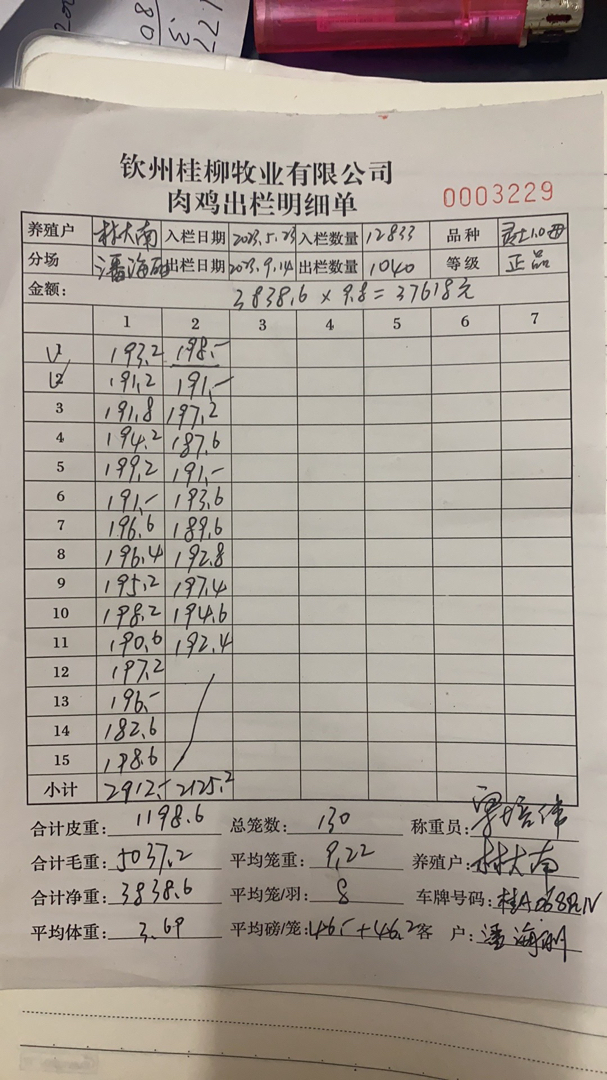 钦州桂柳牧业有限公司
肉鸡出栏明细单
0003229
养殖户 林大南 入栏日期 2023.5.23 入栏数量 12833 品种
分场 潘海 出栏日期 2023.9.14 出栏数量 1040 等级 正品
金额: 3838.6 × 9.8 = 37618元
1 2 3 4 5 6 7
1 193.2 198.-
2 191.2 191.-
3 191.8 197.2
4 194.2 187.6
5 199.2 191.-
6 191.- 193.6
7 196.6 189.6
8 196.4 192.8
9 195.2 197.4
10 198.2 194.6
11 190.6 192.4
12 197.2
13 196.-
14 182.6
15 198.6
小计 2912.- 2125.2
合计皮重: 1198.6 总笼数: 130 称重员:
合计毛重: 5037.2 平均笼重: 9.22 养殖户: 林大南
合计净重: 3838.6 平均笼/羽: 8 车牌号码: 桂A
平均体重: 3.69 平均磅/笼: 46.- + 46.2 客 户: 潘海